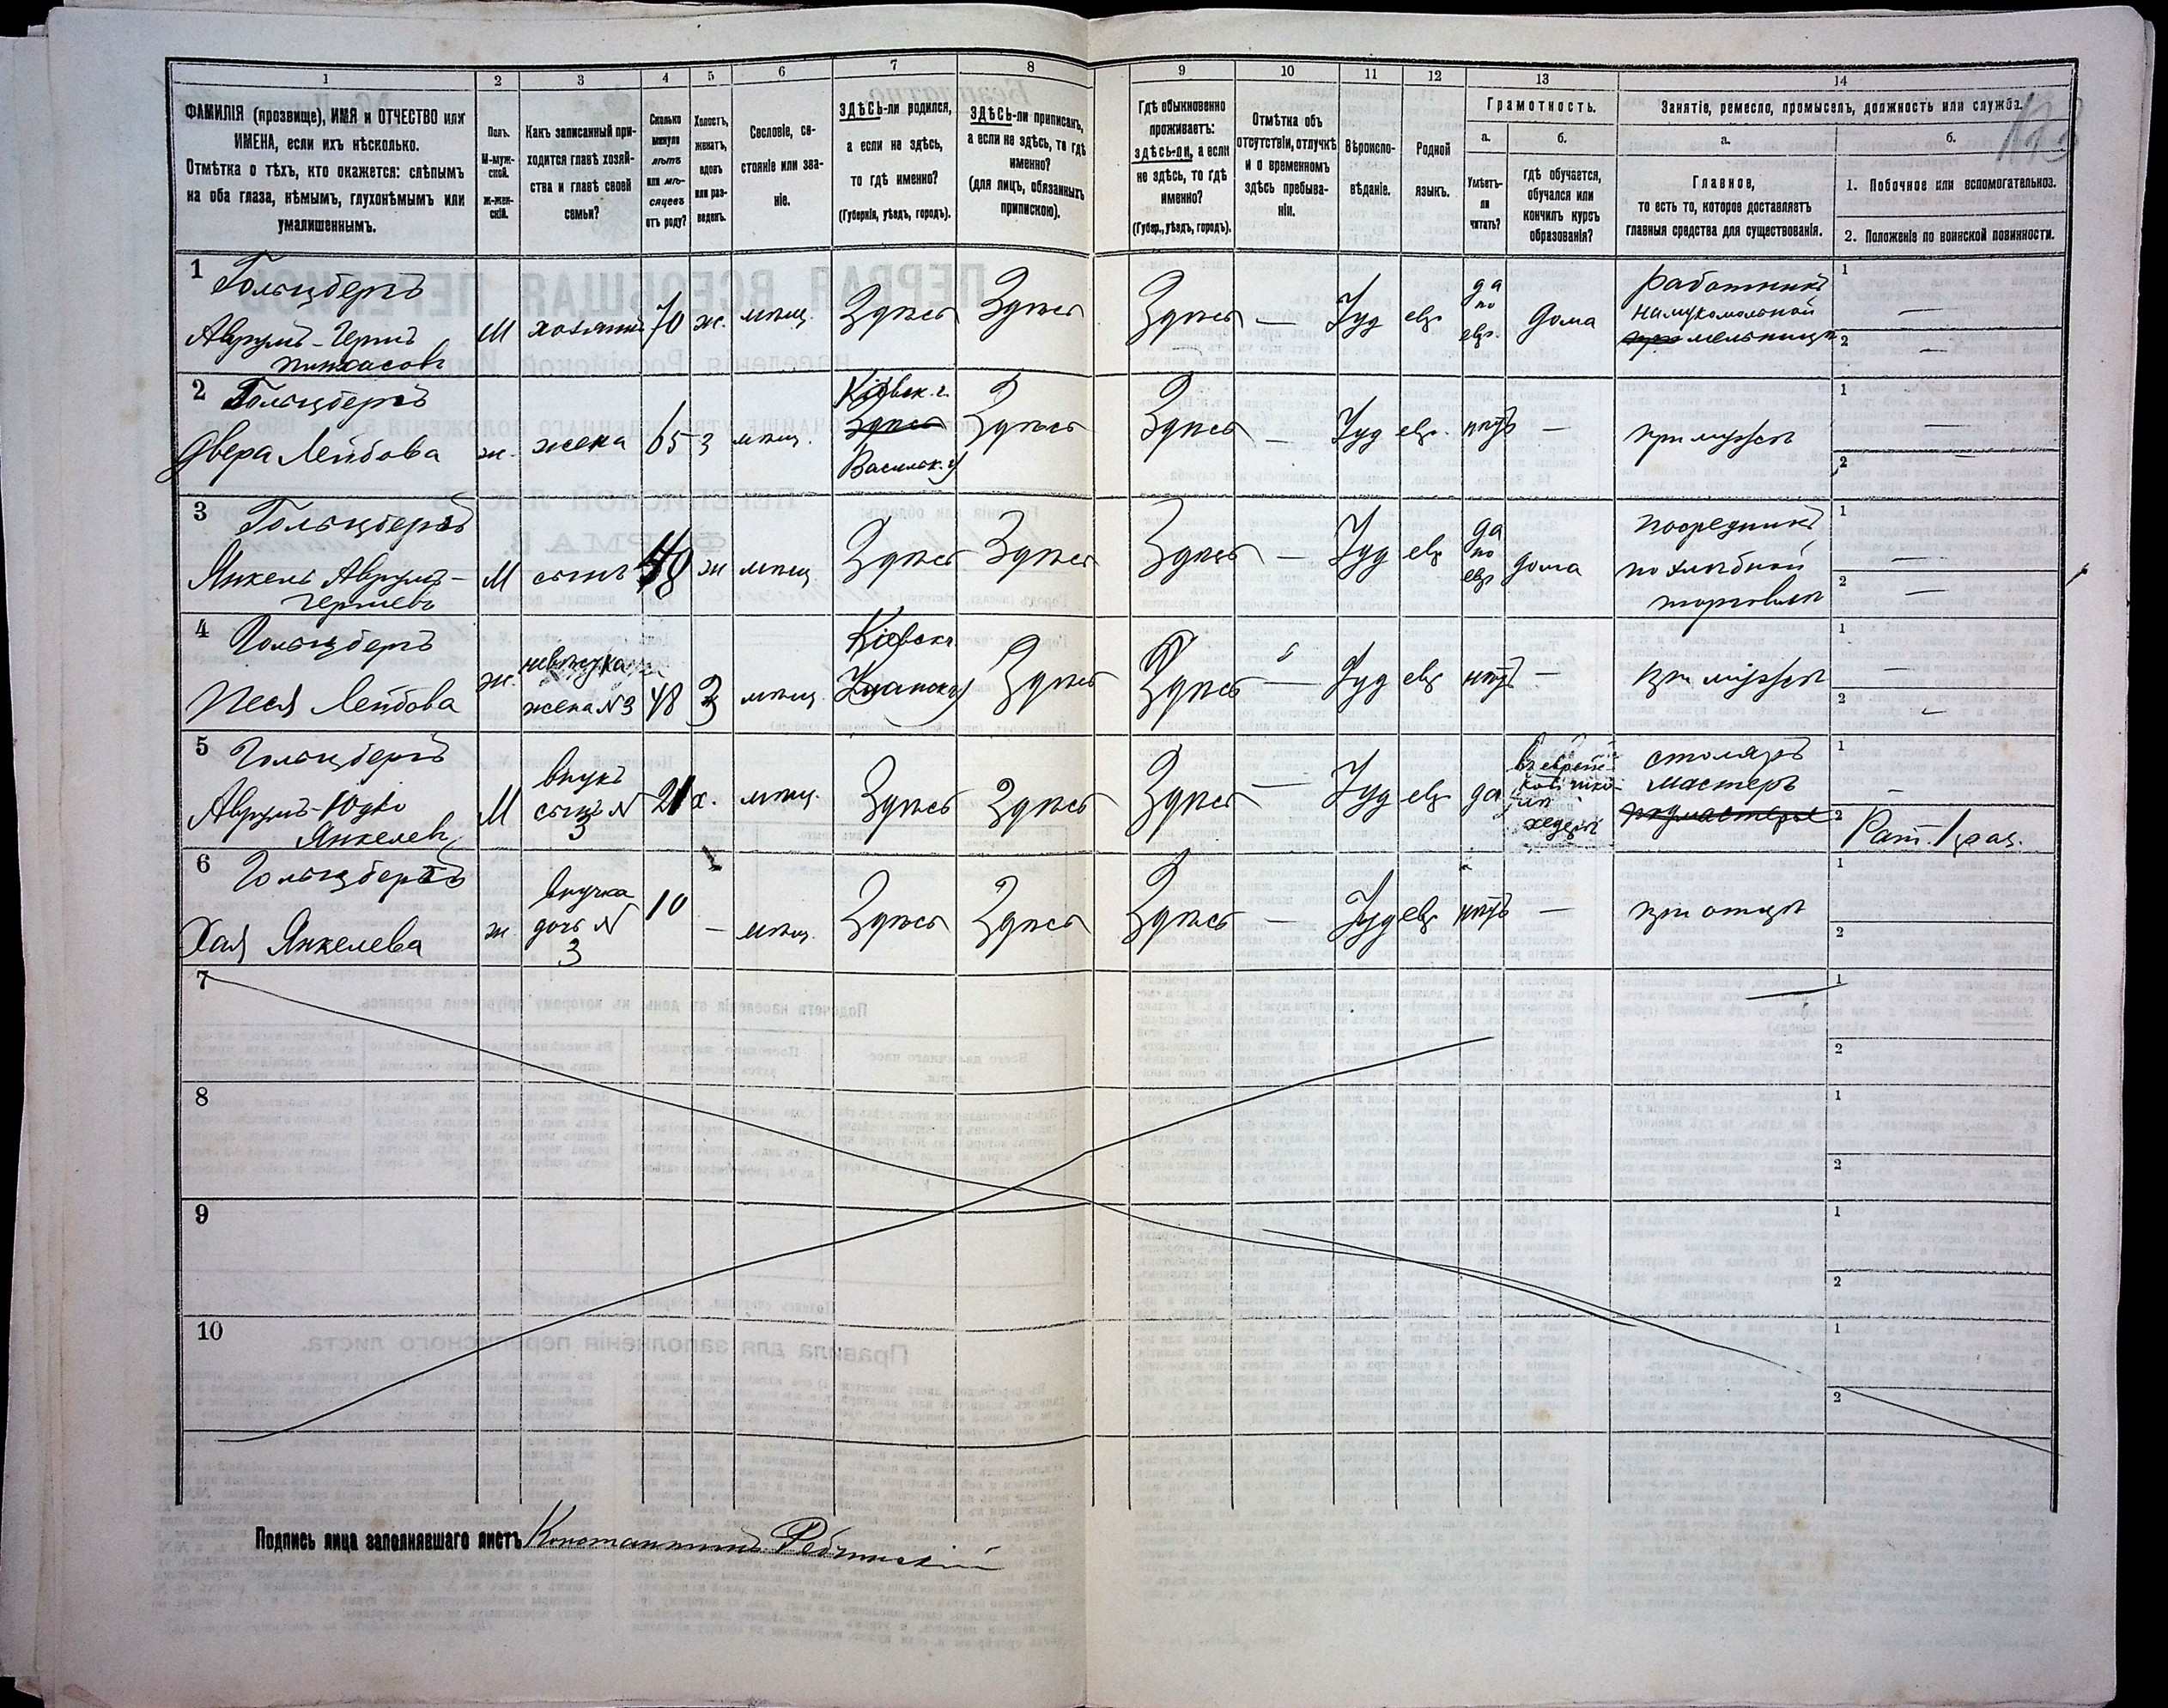 1 2 3 4 5 6 7 8 9 10 11 12 13 14
ФАМИЛІЯ (прозвище), ИМЯ и ОТЧЕСТВО или
ИМЕНА, если ихъ нѣсколько.
Отмѣтка о тѣхъ, кто окажется: слѣпымъ
на оба глаза, нѣмымъ, глухонѣмымъ или
умалишеннымъ.
Полъ.
М-муж-
ской.
Ж-жен-
скій.
Какъ записанный при-
ходится главѣ хозяй-
ства и главѣ своей
семьи?
Сколько
минуло
лѣтъ
или мѣ-
сяцевъ
отъ роду?
Холостъ,
женатъ,
вдовъ
или раз-
веденъ.
Сословіе, со-
стояніе или зва-
ніе.
ЗДѢСЬ-ли родился,
а если не здѣсь,
то гдѣ именно?
(Губернія, уѣздъ, городъ).
ЗДѢСЬ-ли приписанъ,
а если не здѣсь, то гдѣ
именно?
(для лицъ, обязанныхъ
припискою).
Гдѣ обыкновенно
проживаетъ:
здѣсь-ли, а если
не здѣсь, то гдѣ
именно?
(Губер., уѣздъ, городъ).
Отмѣтка объ
отсутствіи, отлучкѣ
и о временномъ
здѣсь пребыва-
ніи.
Вѣроиспо-
вѣданіе.
Родной
языкъ.
Грамотность.
а. б.
Умѣетъ-
ли
читать?
гдѣ обучается,
обучался или
кончилъ курсъ
образованія?
Занятіе, ремесло, промыселъ, должность или служба.
а. б.
Главное,
то есть то, которое доставляетъ
главныя средства для существованія.
1. Побочное или вспомогательное.
2. Положеніе по воинской повинности.
1 Гольцбергъ
Аврумъ-Гершъ
Пинхасовъ
М хозяинъ 70 ж. мѣщ. Здѣсь Здѣсь Здѣсь — Іуд евр да
по
евр. дома работникъ
на мукомольной
мельницѣ
1 —
2 —
2 Гольцбергъ
Двера Лейбова
ж. жена 65 з мѣщ. Кіевск. г.
Здѣсь
Васильк. у
Здѣсь Здѣсь — Іуд евр. нѣтъ — при мужѣ
1 —
2 —
3 Гольцбергъ
Янкель Аврумъ-
Гершевъ
М сынъ ж мѣщ Здѣсь Здѣсь Здѣсь — Іуд евр да
по
евр дома посредникъ
по хлѣбной
торговлѣ
1 —
2 —
4 Гольцбергъ
Песя Лейбова
ж. невѣстка
жена N 3 48 З мѣщ. Кіевск г.
Здѣсь Здѣсь — Іуд евр нѣтъ — при мужѣ
1 —
2 —
5 Гольцбергъ
Аврумъ-Юдко
Янкелев
М внукъ
сынъ N
3 21 х. мѣщ. Здѣсь Здѣсь Здѣсь — Іуд евр да
хедерѣ
столяръ
мастеръ
1 —
2 Рат. 1 раз.
6 Гольцбергъ
Хая Янкелева
ж внучка
дочь N
3 10 — мѣщ. Здѣсь Здѣсь Здѣсь — Іуд евр нѣтъ — при отцѣ
1
2
7 1
2
8 1
2
9 1
2
10 1
2
Подпись лица заполнявшаго листъ Константинъ